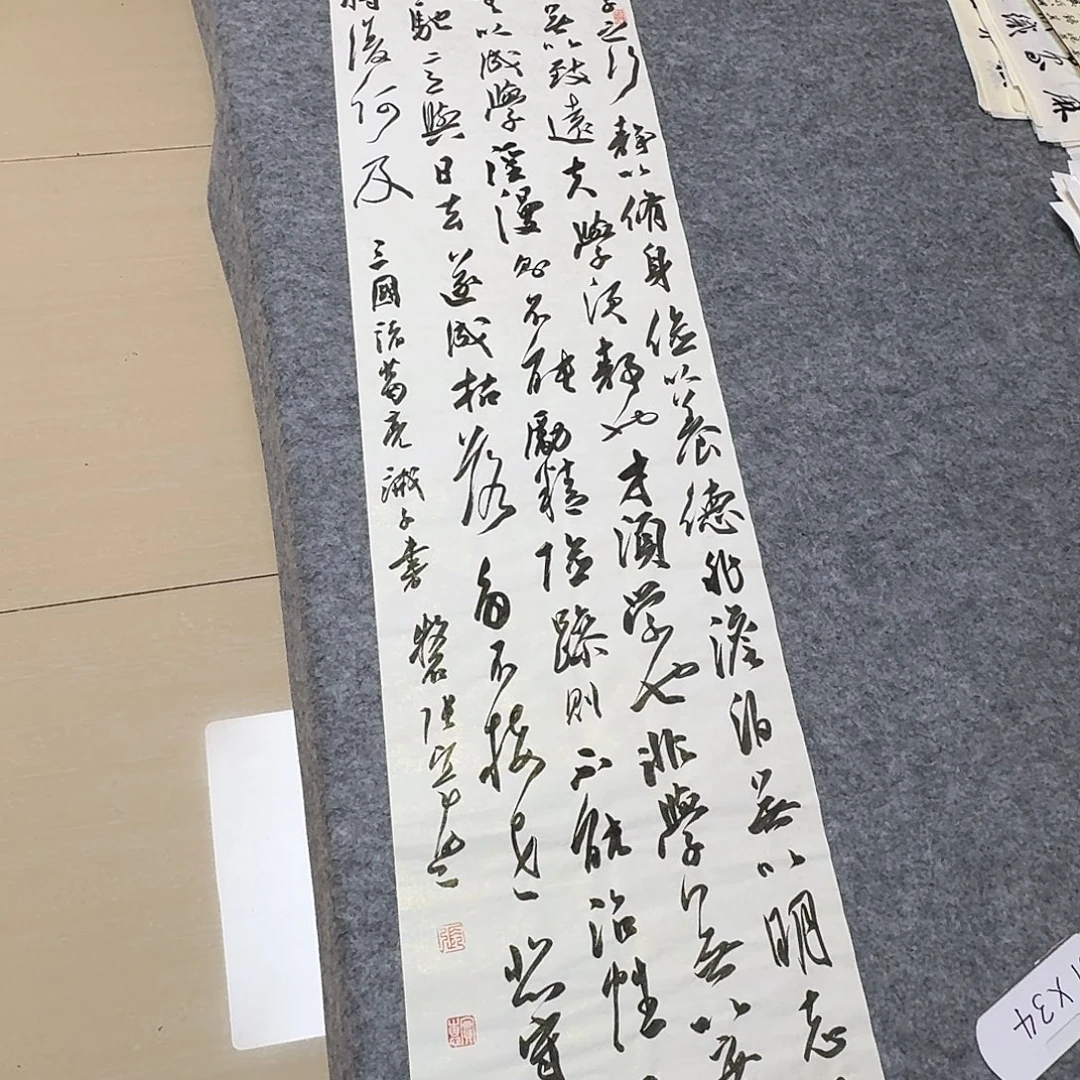 之行靜以脩身儉以養德非澹泊無以明志
無以致遠夫學須靜也才須学也非學無以
以成學淫漫則不能勵精險躁則不能治性
馳意與日去遂成枯落多不接世悲守
將復何及 三國諸葛亮誡子書
張
X34